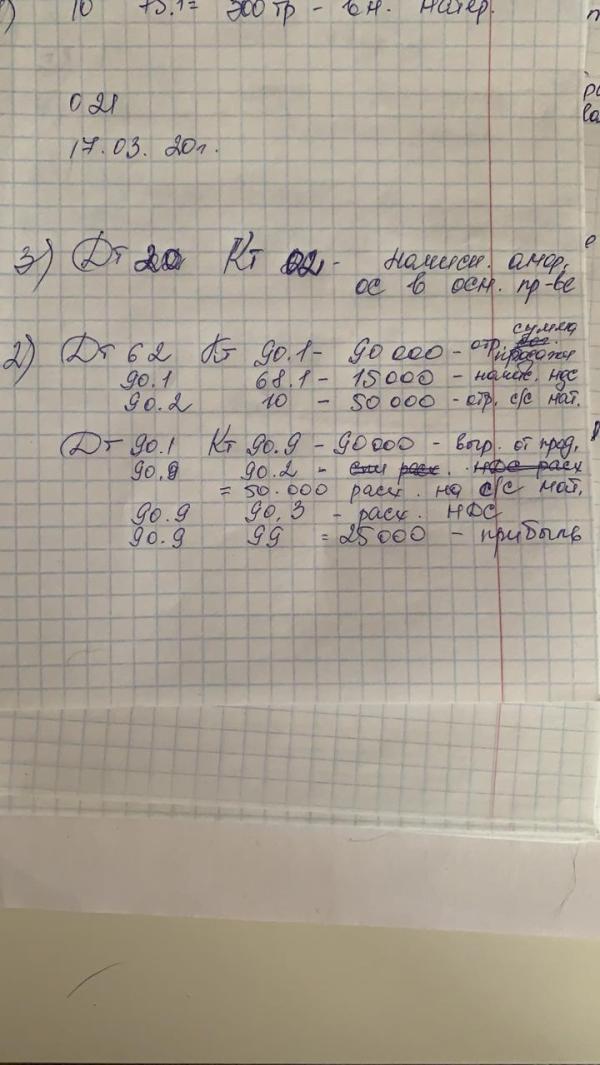 10 75.1 = 300 тр - вн. матер.
021
17.03. 20г.
3) Дт 20 Кт 02 - начисл. амор.
ОС в осн. пр-ве
сумма
2) Дт 62 Кт 90.1 - 90 000 - отр. продажи
90.1 68.1 - 15000 - начис. НДС
90.2 10 - 50000 - отр. с/с мат.
Дт 90.1 Кт 90.9 - 90000 - выр. от прод.
90.9 90.2 - расх. НДС расх
= 50.000 расх. на с/с мат.
90.9 90.3 - расх. НДС
90.9 99 = 25000 - прибыль